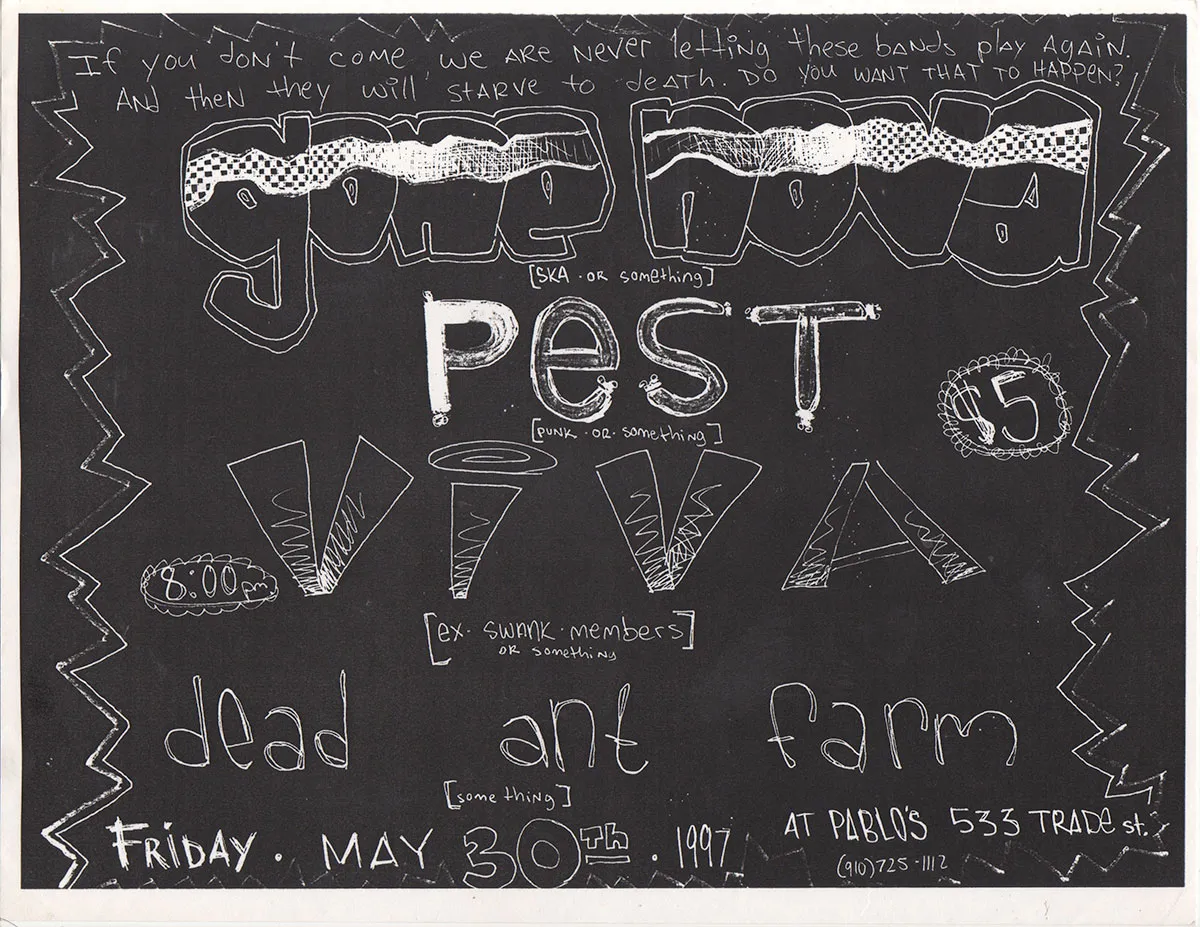 If you don't come, we are never letting these bands play again.
And then they will starve to death. Do you want that to happen?
gone nova
[SKA · OR something]
PesT
[PUNK · OR · something]
$5
ViVA
8:00pm
[ex · SWANK · members]
OR something
dead ant farm
[something]
FRiDAY · MAY 30th · 1997
AT PABLO'S 533 TRADe st.
(910)725-1112